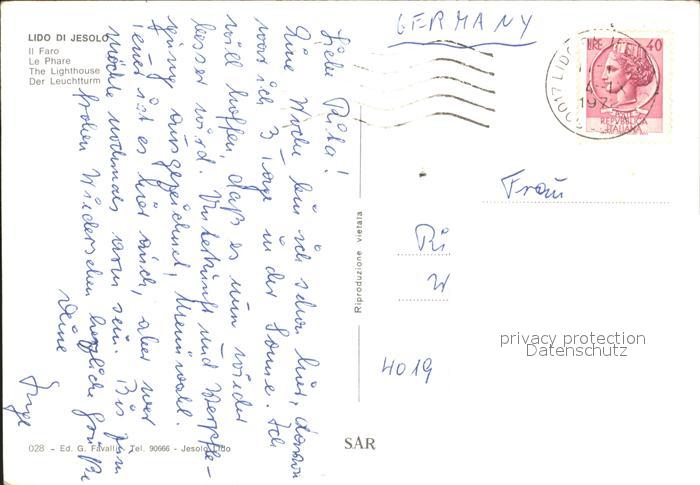 LIDO DI JESOLO
Il Faro
Le Phare
The Lighthouse
Der Leuchtturm
GERMANY
LIRE 40
REPVBBLICA
ITALIANA
30017 LIDO
4-
197
Liebe Rita!
Eine Woche bin ich schon hier, davon
war ich 3 Tage in der Sonne. Ich
will hoffen, daß es nun wieder
besser wird. Unterkunft und Verpfle-
gung ausgezeichnet, Menüwahl.
Teuer ist es hier auch, aber wer
möchte nochmals arm sein. Bis zum
frohen Wiedersehen herzliche Grüße
Deine
Inge
Riproduzione vietata
Frau
Ri
W
4019
privacy protection
Datenschutz
028 - Ed. G. Favallin, Tel. 90666 - Jesolo Lido
SAR